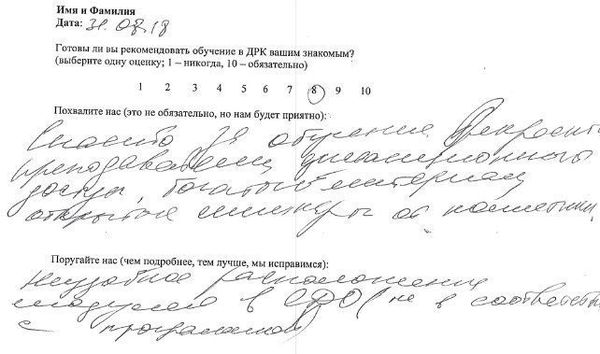 Имя и Фамилия
Дата: 31.08.18
Готовы ли вы рекомендовать обучение в ДРК вашим знакомым?
(выберите одну оценку; 1 – никогда, 10 – обязательно)
1 2 3 4 5 6 7 8 9 10
Похвалите нас (это не обязательно, но нам будет приятно):
Спасибо за обучение. Прекрасн
преподаватели, дистанционного
доступ, богатый материал,
открытые семинары от
Поругайте нас (чем подробнее, тем лучше, мы исправимся):
Неудобное расположение
модулей в СДО (не в соответств
с программой)